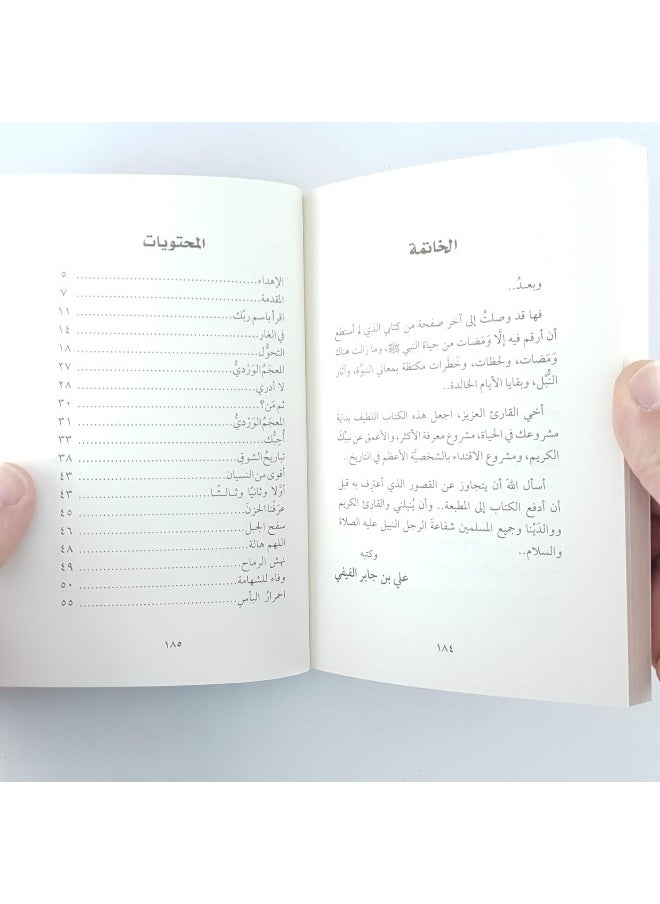 الخاتمة
وبعدُ..
فها قد وصلتُ إلى آخر صفحة من كتابي الذي لم أستطع
أن أرقم فيه إلَّا وَمَضات من حياة النبي ﷺ، وما زالت هناك
وَمَضات، ولحظات، وخَطَرات مكتظة بمعاني النبوَّة، وآثار
النُّبل، وبقايا الأيام الخالدة..
أخي القارئ العزيز، اجعل هذه الكتاب اللطيف بداية
مشروعك في الحياة، مشروع معرفة الأكثر، والأعمق عن نبيِّك
الكريم، ومشروع الاقتداء بالشخصيَّة الأعظم في التاريخ..
أسأل الله أن يتجاوز عن القصور الذي أعترف به قبل
أن أدفع الكتاب إلى المطبعة.. وأن يُنيلني والقارئ الكريم
ووالدَيْنا وجميع المسلمين شفاعةَ الرجل النبيل عليه الصلاة
والسلام..
وكتبه
علي بن جابر الفيفي
١٨٤
المحتويات
الإهداء ٥
المقدمة ٧
اقرأ باسم ربِّك ١١
في الغار ١٤
التحوُّل ١٨
المعجَمُ الوَرْديُّ ٢٧
لا أدري ٢٨
ثم مَن؟ ٣٠
المعجَمُ الوَرْديُّ ٣١
أُحِبُّك ٣٣
تباريحُ الشوقِ ٣٨
أقوى من النسيان ٤٣
أوَّلًا وثانيًا وثالثًا ٤٣
عرَفْنا الحزنَ ٤٥
سفح الجبل ٤٦
اللهم هالة ٤٨
نهش الرماح ٤٩
وفاء للشهامة ٥٠
احمرارُ البأسِ ٥٥
١٨٥